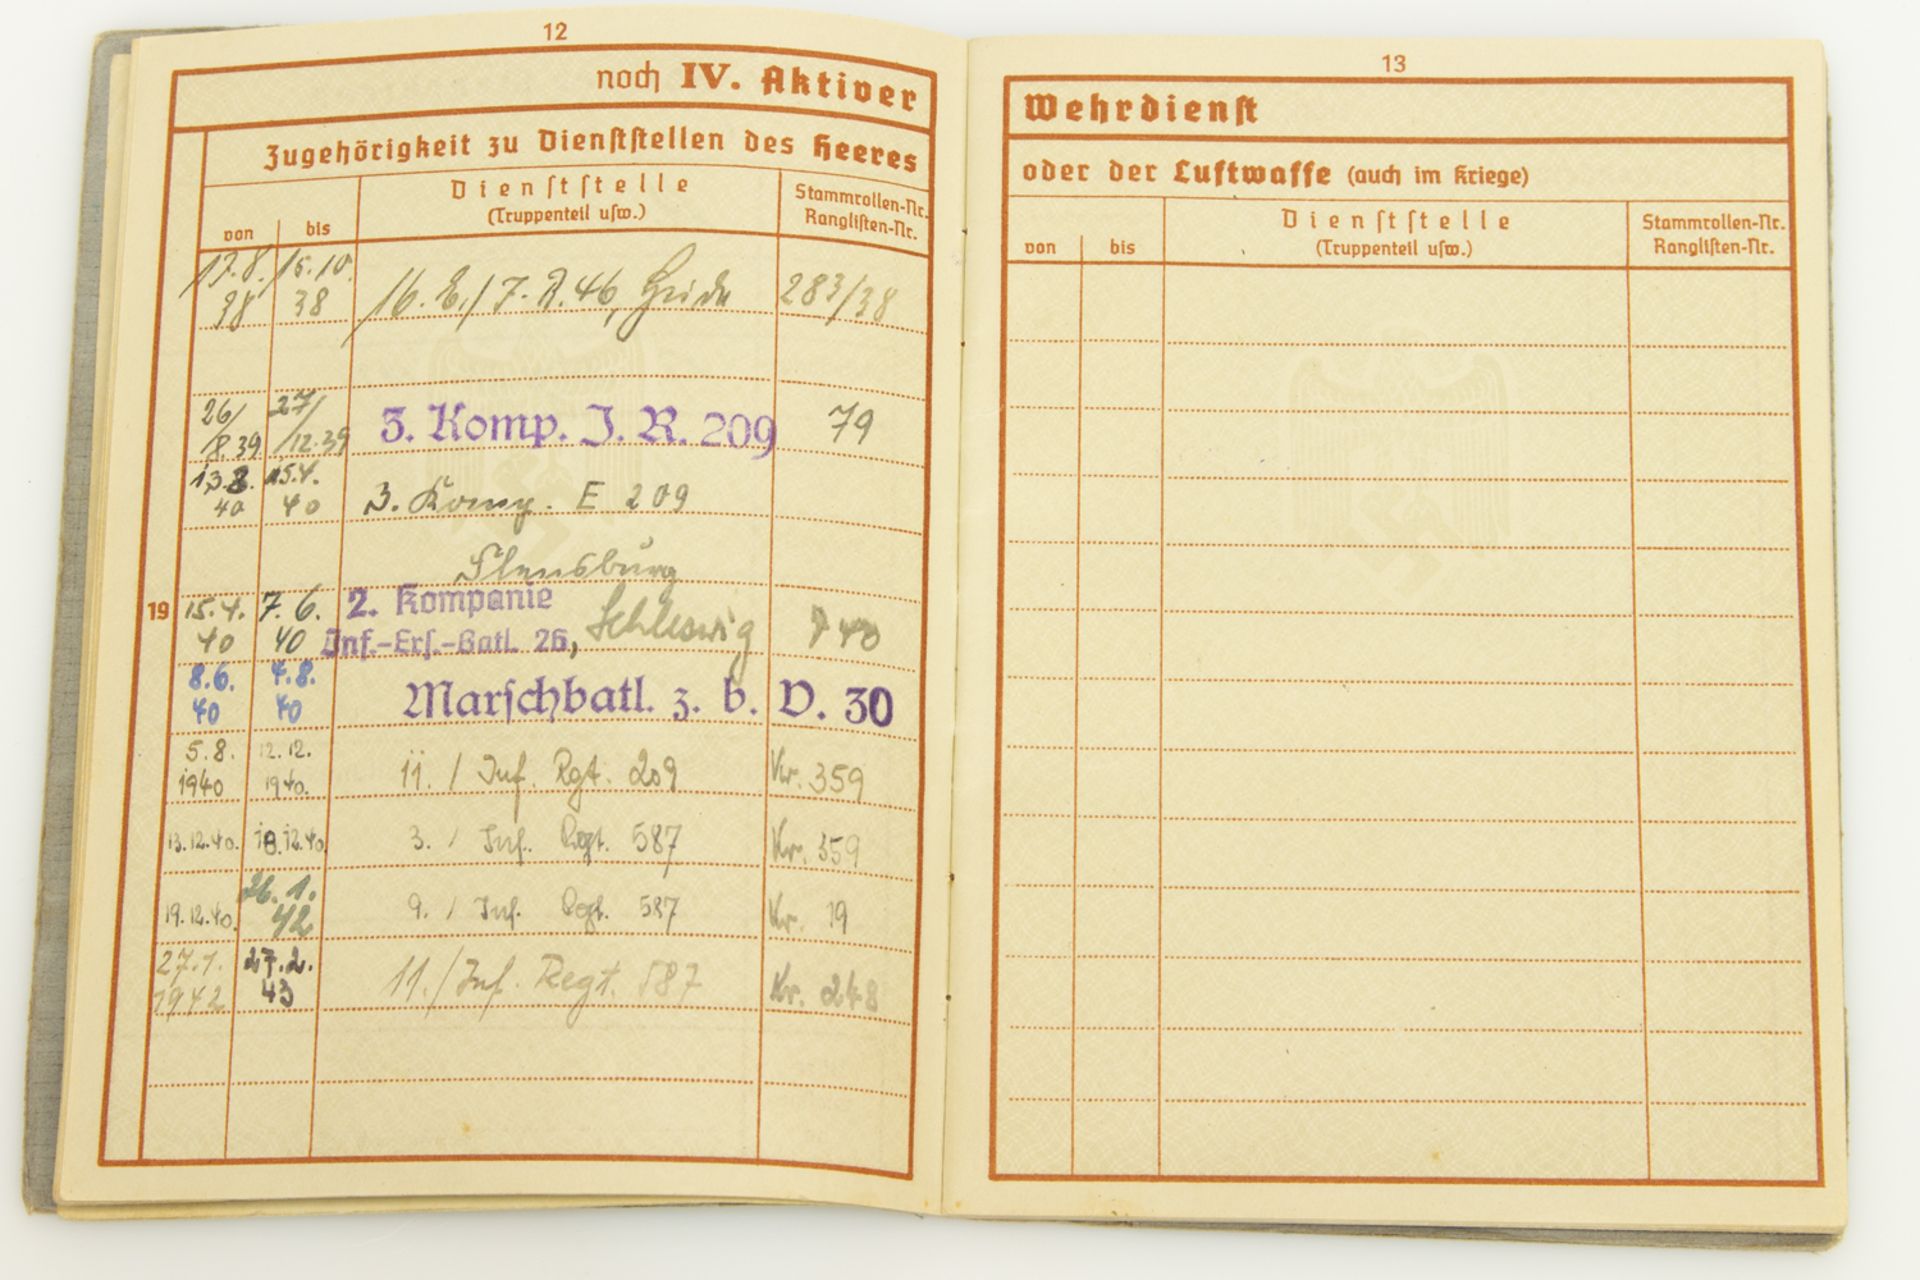 12
noch IV. Aktiver
Zugehörigkeit zu Dienststellen des Heeres
von bis Dienststelle (Truppenteil usw.) Stammrollen-Nr. Ranglisten-Nr.
17.8. 38 15.10. 38 16. E./J.R. 46, Heide 283/38
26/8.39 27/12.39 3. Komp. J. R. 209 79
13.8. 40 15.4. 40 3. Komp. E 209
Flensburg
19 15.4. 40 7.6. 40 2. Kompanie
Inf.-Ers.-Batl. 26, Schleswig
8.6. 40 4.8. 40 Marschbatl. z. b. V. 30
5.8. 1940 12.12. 1940. 11. / Inf. Rgt. 209 Kr. 359
13.12.40. 18.12.40 3. / Inf. Rgt. 587 Kr. 359
19.12.40. 26.1. 42 9. / Inf. Rgt. 587 Kr. 19
27.1. 1942 27.2. 43 11./Inf. Regt. 587 Kr. 248
13
Wehrdienst
oder der Luftwaffe (auch im Kriege)
von bis Dienststelle (Truppenteil usw.) Stammrollen-Nr. Ranglisten-Nr.